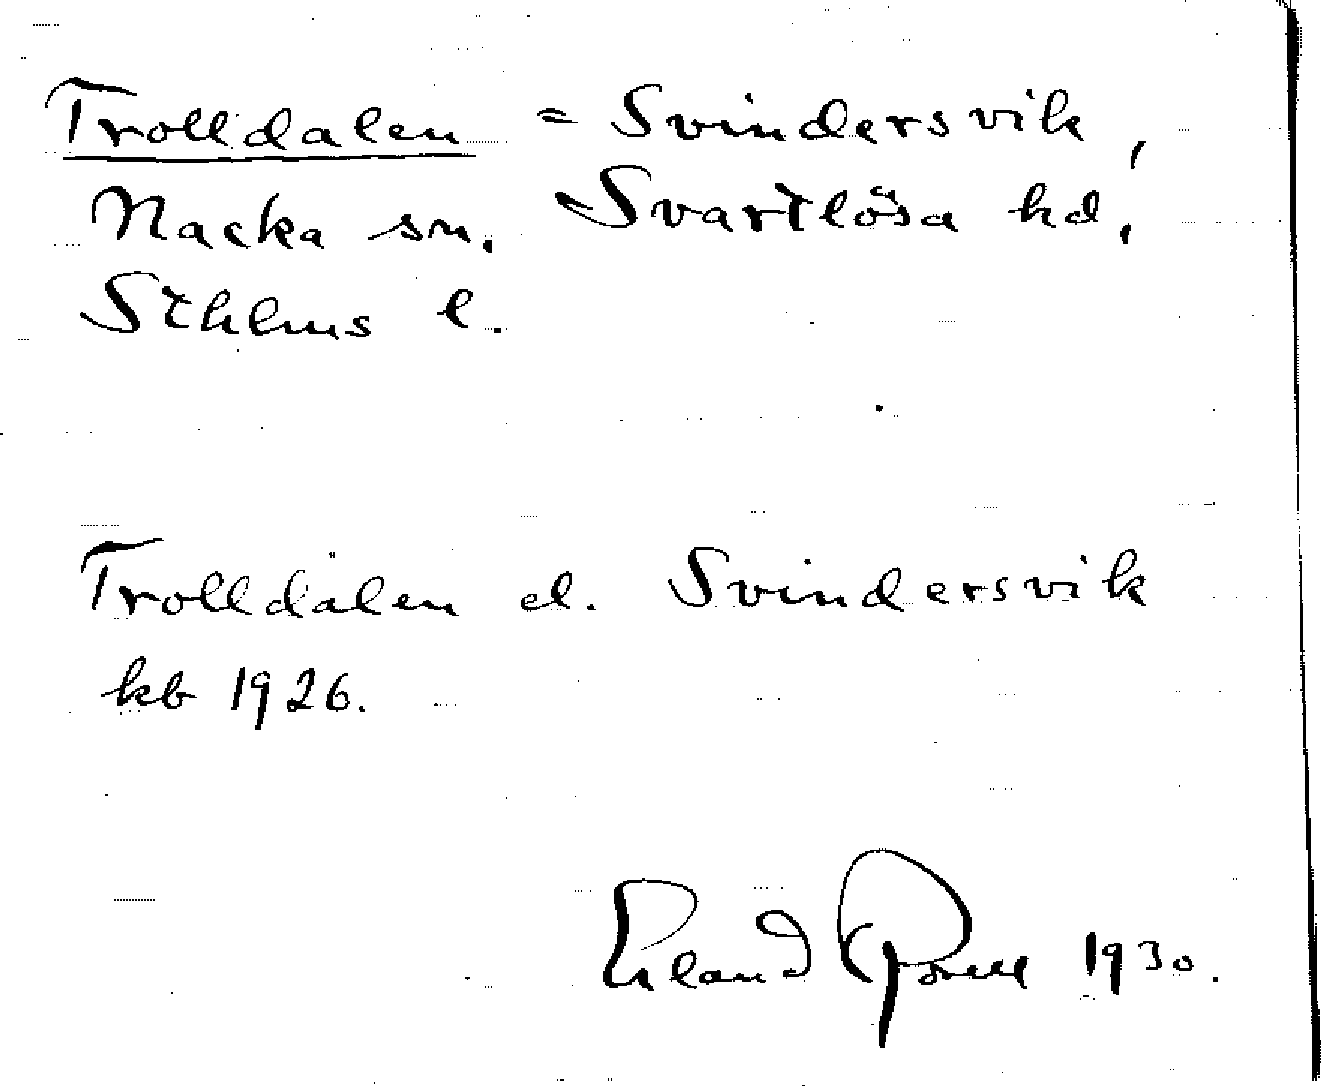 Trolldalen = Svindersvik,
Nacka sn. Svartlösa hd,
Sthlms l.
Trolldalen el. Svindersvik
kb 1926.
Erland 1930.